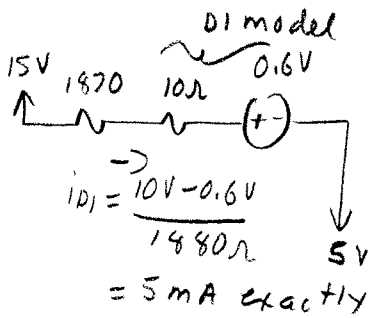 D1 model
15V 1870 10Ω 0.6V
+ -
iD1 = 10V - 0.6V
1880Ω
5V
= 5mA exactly